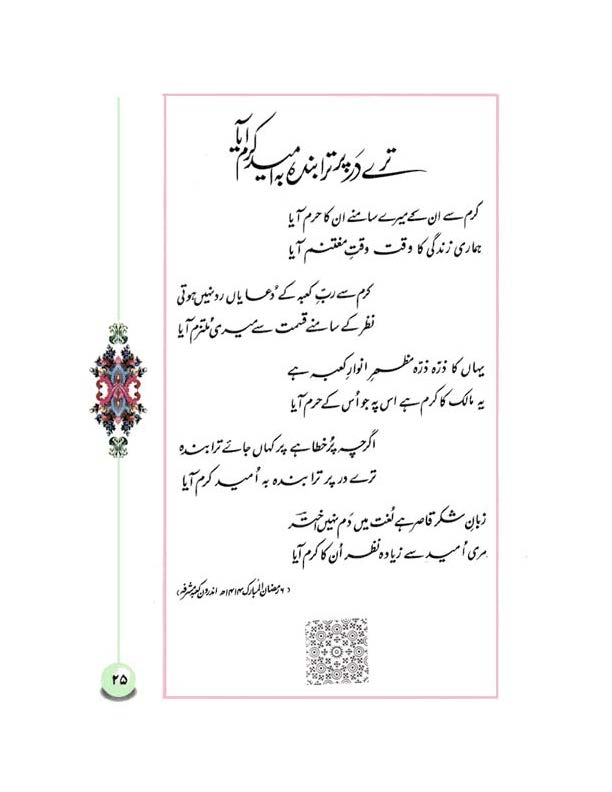 ترے در پر ترا بندہ بہ امید کرم آیا
کرم سے ان کے میرے سامنے ان کا حرم آیا
ہماری زندگی کا وقت وقتِ مغتنم آیا
کرم سے ربِّ کعبہ کے دُعا یاں رد نہیں ہوتی
نظر کے سامنے قسمت سے میری مُلتزم آیا
یہاں کا ذرّہ ذرّہ مظہرِ انوارِ کعبہ ہے
یہ مالک کا کرم ہے اس پہ جو اُس کے حرم آیا
اگرچہ پُرخطا ہے پر کہاں جائے ترا بندہ
ترے در پر ترا بندہ بہ اُمید کرم آیا
زبانِ شکر قاصر ہے لُغت میں دَم نہیں اخترؔ
مری اُمید سے زیادہ نظر اُن کا کرم آیا
(۶ رمضان المبارک ۱۴۱۴ھ اندرون کعبہ مشرفہ)
۲۵